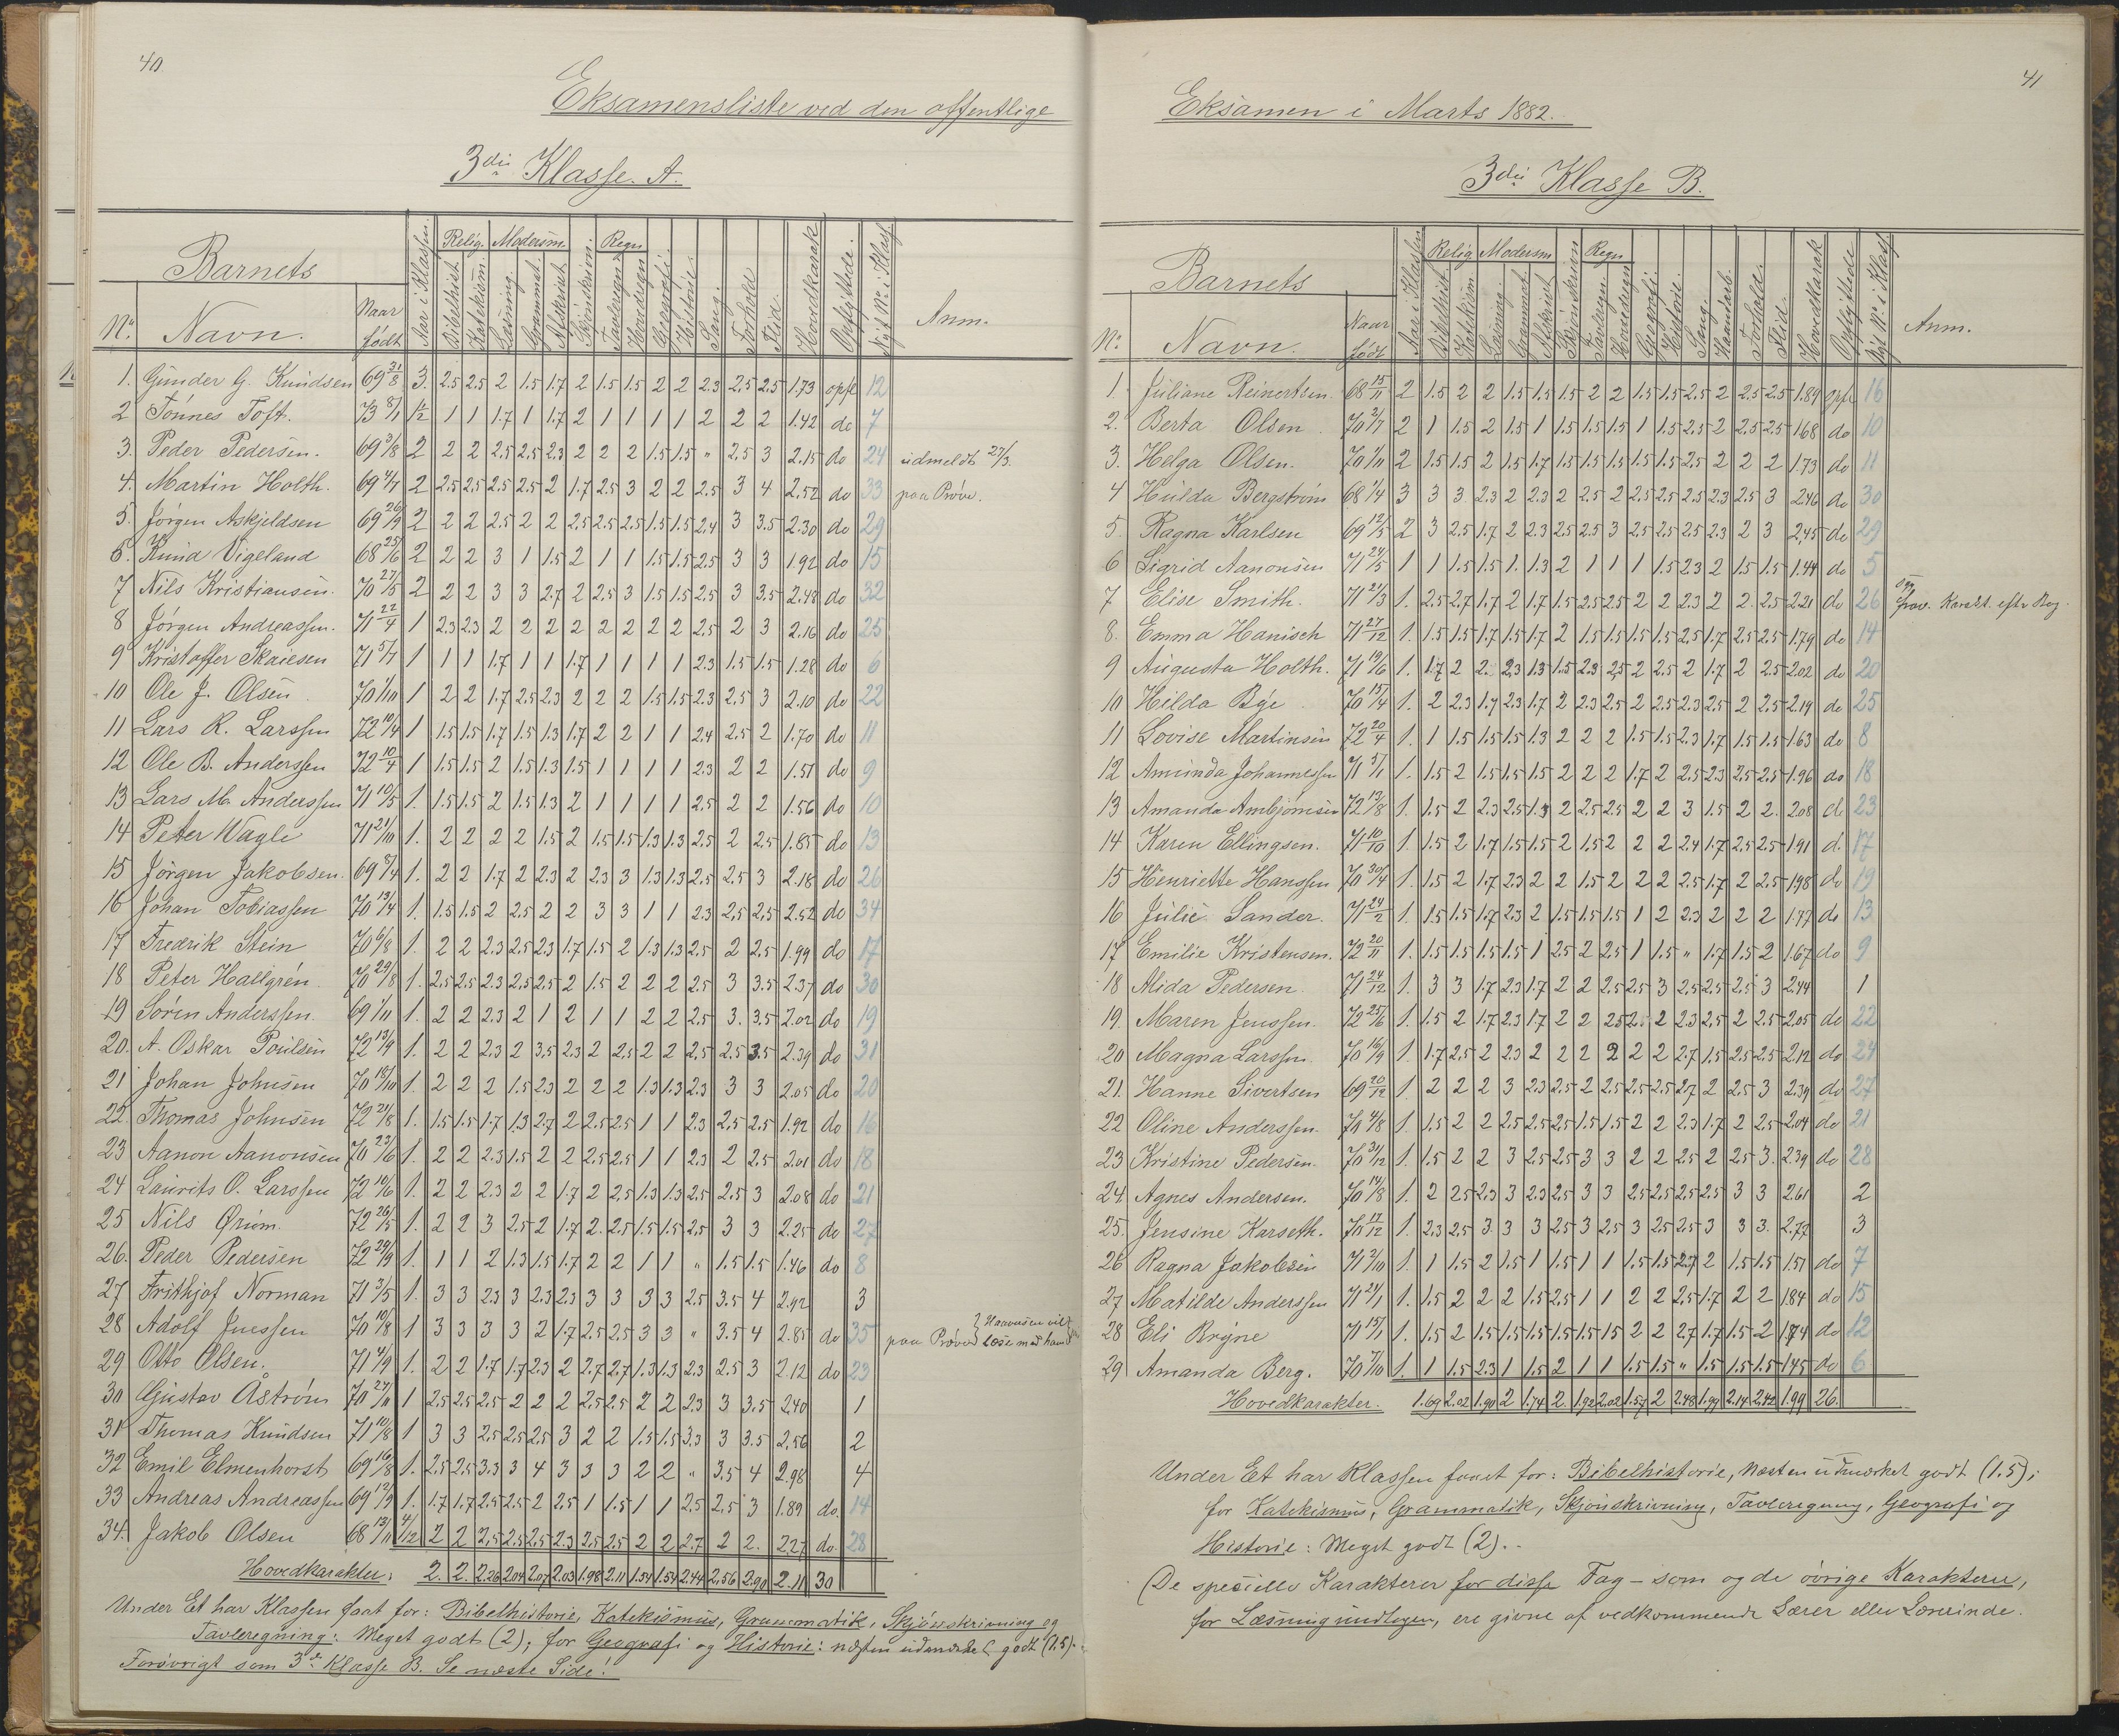 40
Eksamensliste ved den offentlige
3die Klasse. A.
Barnets
No. Navn. Naar født Aar i Klassen. Relig. Bibelhist. Katekism. Modersm. Læsning. Grammat. Afskrivt. Skjønskrivn. Regn Tavleregn. Hovedregn. Geografi. Historie. Sang. Forhold. Flid. Hovedkarak. Opflyttede. Nyt No. i Klas. Anm.
1. Gunder G. Knudsen 69 31/8 3. 2.5 2.5 2 1.5 1.7 2 1.5 1.5 2 2 2.3 2.5 2.5 1.73 opfl 12
2 Tønnes Toft. 73 8/1 1½ 1 1 1.7 1 1.7 2 1 1 1 1 2 2 2 1.42 do 7
3. Peder Pedersen. 69 3/8 2 2 2 2.5 2.5 2.3 2 2 2 1.5 1.5 " 2.5 3 2.15 do 24 udmeldt 27/3.
4. Martin Holth. 69 4/7 2 2.5 2.5 2.5 2.5 2 1.7 2.5 3 2 2 2.5 3 4 2.52 do 33 paa Prøve.
5. Jørgen Askjeldsen 69 26/9 2 2 2 2.5 2 2 2.5 2.5 2.5 1.5 1.5 2.4 3 3.5 2.30 do 29
6. Knud Vigeland 68 25/6 2 2 2 3 1 1.5 2 1 1 1.5 1.5 2.5 3 3 1.92 do 15
7 Nils Kristiansen. 70 27/5 2 2 2 3 3 2.7 2 2.5 3 1.5 1.5 2.5 3 3.5 2.48 do 32
8 Jørgen Andreassen. 71 22/4 1 2.3 2.3 2 2 2 2 2 2 2 2 2.5 2 3 2.16 do 25
9 Kristoffer Skaiesen 71 5/7 1 1 1 1.7 1 1 1.7 1 1 1 1 2.3 1.5 1.5 1.28 do 6
10 Ole J. Olsen 70 1/10 1 2 2 1.7 2.5 2.3 2 2 2 1.5 1.5 2.3 2.5 3 2.10 do 22
11 Lars R. Larssen 72 10/4 1 1.5 1.5 1.7 1.5 1.3 1.7 2 2 1 1 2.4 2.5 2 1.70 do 11
12 Ole B. Anderssen 72 10/4 1 1.5 1.5 2 1.5 1.3 1.5 1 1 1 1 2.3 2 2 1.51 do 9
13 Lars M. Anderssen 71 10/5 1. 1.5 1.5 2 1.5 1.3 2 1 1 1 1 2.5 2 2 1.56 do 10
14 Peter Wagle 71 21/10 1. 2 2 2 2 1.5 2 1.5 1.5 1.3 1.3 2.5 2 2.5 1.85 do 13
15 Jørgen Jakobsen. 69 8/4 1. 2 2 1.7 2 2.3 2 2.3 3 1.3 1.3 2.5 2.5 3 2.18 do 26
16 Johan Tobiassen 70 13/4 1. 1.5 1.5 2 2.5 2 2 3 3 1 1 2.3 2.5 2.5 2.52 do 34
17 Fredrik Stein 70 6/8 1. 2 2 2.3 2.5 2.3 1.7 1.5 2 1.3 1.3 2.5 2 2.5 1.99 do 17
18 Peter Hallgrén 70 29/8 1. 2.5 2.5 2.3 2.5 2.5 2 1.5 2 2 2 2.5 3 3.5 2.37 do 30
19 Søren Anderssen. 69 1/11 1. 2 2 2.3 2 1 2 1 1 2 2 2.5 3. 3.5 2.02 do 19
20. A. Oskar Poulsen 72 13/9 1. 2 2 2.3 2 3.5 2.3 2 2.5 2 2 2.5 2.5 3.5 2.39 do 31
21 Johan Johnsen 70 18/10 1. 2 2 2 1.5 2.3 2 2 2 1.3 1.3 2.3 3 3 2.05 do 20
22. Thomas Johnsen 72 21/8 1. 1.5 1.5 1.7 1.3 2.7 2 2.5 2.5 1 1 2.3 2.5 2.5 1.92 do 16
23 Aanon Aanonsen 70 23/6 1. 2 2 2.3 1.5 2 2 2.5 2.5 1 1 2.3 2 2.5 2.01 do 18
24 Laurits O. Larssen 72 10/6 1. 2 2 2.3 2 2 1.7 2 2.5 1.3 1.3 2.5 2.5 3 2.08 do 21
25 Nils Ørum. 72 26/5 1. 2 2 3 2.5 2 1.7 2. 2.5 1.5 1.5 2.5 3 3 2.25 do 27
26. Peder Pedersen 72 29/9 1. 1 1 2 1.3 1.5 1.7 2 2 1 1 " 1.5 1.5 1.46 do 8
27 Frithjof Norman 71 3/5 1. 3 3 2.3 3 2.3 2.3 3 3 3 3 2.5 3.5 4 2.92 3
28 Adolf Juessen 70 10/8 1 3 3 3 3 2 1.7 2.5 2.5 3 3 " 3.5 4 2.85 do 35 paa Prøve læse med ham
29 Otto Olsen. 71 4/9 1. 2 2 1.7 1.7 2.3 2 2.7 2.7 1.3 1.3 2.3 2.5 3 2.12 do 23
30 Gustav Åstrøm 70 27/11 1 2.5 2.5 2.5 2 2 2 2.5 2.5 2 2 2.3 3 3.5 2.40 1
31 Thomas Knudsen 71 10/8 1 3 3 2.5 2.5 2.5 3 2 2 1.5 1.5 3.3 3 3.5 2.56 2
32 Emil Elmenhorst 69 16/8 1. 2.5 2.5 3.3 3 4 3 3 3 2 2 " 3.5 4 2.98 4
33 Andreas Andreassen 69 12/9 1. 1.7 1.7 2.5 2.5 2 2.5 1 1.5 1 1 2.5 2.5 3 1.89 do. 14
34. Jakob Olsen 68 13/11 4/12 2 2 2.5 2.5 2.5 2.3 2.5 2.5 2 2 2.7 2 2. 2.27 do. 28
Hovedkarakter: 2. 2. 2.26 2.04 2.07 2.03 1.98 2.11 1.54 1.54 2.44 2.56 2.90 2.11 30
Under Et har Klassen faat for: Bibelhistorie, Katekismus, Grammatik, Skjønskrivning og
Tavleregning: Meget godt (2); for Geografi og Historie: næsten udmærket godt (1.5).
Forøvrigt som 3de Klasse B. Se næste Side!
41
Eksamen i Marts 1882.
3die Klasse B.
Barnets
No. Navn. Naar født Aar i Klassen Relig Bibelhist. Katekism. Modersm Læsning. Grammat. Afskrivt Skjønskrivn Regn Tavleregn. Hovedregn Geografi. Historie. Sang. Haandarb. Forhold. Flid. Hovedkarak Opflyttede Nyt No. i Klas. Anm.
1. Juliane Reinertsen. 68 15/11 2 1.5 2 2 1.5 1.5 1.5 2 2 1.5 1.5 2.5 2 2.5 2.5 1.89 opfl 16
2. Berta Olsen 70 2/7 2 1 1.5 2 1.5 1 1.5 1.5 1.5 1 1.5 2.5 2 2.5 2.5 1.68 do 10
3. Helga Olsen. 70 1/11 2 1.5 1.5 2 1.5 1.7 1.5 1.5 1.5 1.5 1.5 2.5 2 2 2 1.73 do 11
4 Hulda Bergstrøm 68 1/4 3 3 3 2.3 2 2.3 2 2.5 2 2.5 2.5 2.5 2.3 2.5 3 2.46 do 30
5. Ragna Karlsen 69 12/5 2 3 2.5 1.7 2 2.3 2.5 2.5 3 2.5 2.5 2.5 2.3 2 3 2.45 do 29
6 Sigrid Aanonsen 71 24/5 1 1 1.5 1.5 1. 1.3 2 1 1 1 1.5 2.3 2 1.5 1.5 1.44 do 5
7 Elise Smith. 71 21/3 1. 2.5 2.7 1.7 2 1.7 1.5 2.5 2.5 2 2 2.3 2 2. 2.5 2.21 do 26 Karakt. eftr Reg.
8. Emma Hanisch 71 27/12 1. 1.5 1.5 1.7 1.5 1.7 2 1.5 1.5 1.5 1.5 2.5 1.7 2.5 2.5 1.79 do 14
9 Augusta Holth. 71 19/6 1. 1.7 2 2. 2.3 1.3 1.5 2.3 2.5 2 2.5 2 1.7 2 2.5 2.02 do 20
10 Hilda Bye 70 15/4 1. 2 2.3 1.7 2.3 1.7 2 2.3 2.5 2 2.5 2.3 2.5 2 2.5 2.19 do 25
11 Lovise Martinsen 72 20/4 1. 1 1.5 1.5 1.5 1.3 2 2 2 1.5 1.5 2.3 1.7 1.5 1.5 1.63 do 8
12 Aminda Johannessen 71 3/1 1. 1.5 2 1.5 1.5 1.5 2 2 2 1.7 2 2.5 2.3 2.5 2.5 1.96 do 18
13 Amanda Ambjørnsen 72 13/8 1. 1.5 2 2.3 2.5 1.3 2 2.5 2.5 2 2 3 1.5 2 2. 2.08 d. 23
14 Karen Ellingsen. 71 10/10 1. 1.5 2 1.7 1.5 1.5 2 1.5 2 2 2 2.4 1.7 2.5 2.5 1.91 d. 17
15 Henriette Hanssen 70 30/4 1. 1.5 2 1.7 2.3 2 2 1.5 2 2 2 2.5 1.7 2 2.5 1.98 do 19
16 Julie Sander. 71 24/2 1. 1.5 1.5 1.7 2.3 2 1.5 1.5 1.5 1 2 2.3 2 2 2 1.77 do 13
17 Emilie Kristensen. 72 20/11 1. 1.5 1.5 1.5 1.5 1 2.5 2 2.5 1 1.5 " 1.7 1.5 2 1.67 do 9
18 Alida Pedersen 71 24/12 1. 3 3 1.7 2.3 1.7 2 2 2.5 2.5 3 2.5 2.5 2.5 3 2.44 1
19. Maren Jenssen. 72 25/6 1. 1.5 2 1.7 2.3 1.7 2 2 2.5 2.5 2 2.3 2.5 2 2.5 2.05 do 22
20 Magna Larssen. 70 16/9 1. 1.7 2.5 2 2.3 2 2 2 2 2 2 2.7 1.5 2.5 2.5 2.12 do 24
21. Hanne Sivertsen 69 20/12 1. 2 2 2 3 2.3 2.5 2 2.5 2.5 2.5 2.7 2 2.5 3 2.39 do 27
22 Oline Anderssen. 70 4/8 1. 1.5 2 2 2.5 2.5 2.5 1.5 1.5 2 2 2.3 1.7 2 2.5 2.04 do 21
23 Kristine Pedersen. 70 31/12 1. 1.5 2 2 3 2.5 2.5 3 3 2 2 2.5 2 2.5 3. 2.39 do 28
24 Agnes Andersen. 70 14/8 1. 2 2.5 2.3 3 2.3 2.5 3 3 2.5 2.5 2.5 2.5 3 3 2.61 2
25. Jensine Karseth. 70 17/12 1. 2.3 2.5 3 3 3 2.5 3 2.5 3 2.5 2.5 3 3 3. 2.77 3
26 Ragna Jakobsen 71 2/10 1. 1 1.5 2 1.5 1 1.5 1 1 1.5 1.5 2.7 2 1.5 1.5 1.51 do 7
27 Matilde Anderssen 71 21/1 1. 1.5 2 2 2 1.5 2.5 1 1 2 2 2.5 1.7 2 2 1.84 do 15
28 Eli Bryne 71 15/1 1. 1.5 2 1.5 1.5 1.5 1.5 1.5 1.5 2 2 2.7 1.7 1.5 2 1.74 do 12
29 Amanda Berg. 70 7/10 1. 1 1.5 2.3 1 1.5 2 1 1 1.5 1.5 " 1.5 1.5 1.5 1.45 do 6
Hovedkarakter. 1.69 2.02 1.90 2 1.74 2. 1.92 2.02 1.57 2 2.48 1.99 2.14 2.42 1.99 26.
Under Et har Klassen faaet for: Bibelhistorie, Næsten udmærket godt (1.5);
for Katekismus, Grammatik, Skjønskrivning, Tavleregning, Geografi og
Historie: Meget godt (2).
(De specielle Karakterer for disse Fag - som og de øvrige Karakterer,
for Læsning undtagen, ere givne af vedkommende Lærer eller Lærerinde.